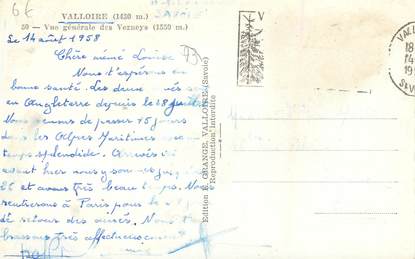 6€
VALLOIRE (1430 m.)
50 - Vue générale des Verneys (1550 m.)
Le 14 août 1958
93
Chère mémé Louise
Nous t'espérons en
bonne santé. Les deux sont
en Angleterre depuis le 28 juillet
Nous venons de passer 15 jours
dans les Alpes Maritimes
temps splendide. Arrivés ici
avant hier nous y sommes jusqu'au
25 et avons très beau temps. Nous
rentrerons à Paris pour le
de retour des
brassons très affectueusement
Edition E. GRANGE, VALLOIRE (Savoie)
Reproduction interdite
V
VALL
18
14
19
SAV